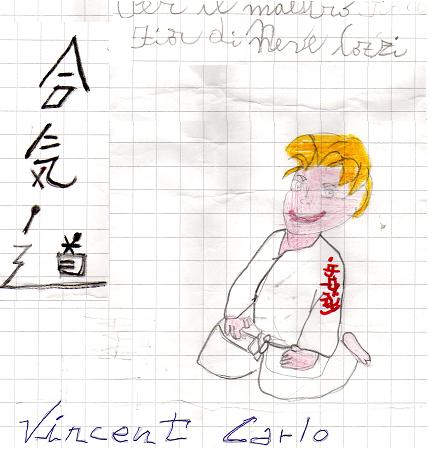 per il maestro
Fior di Neve Cozzi
合
気
道
Vincent Carlo